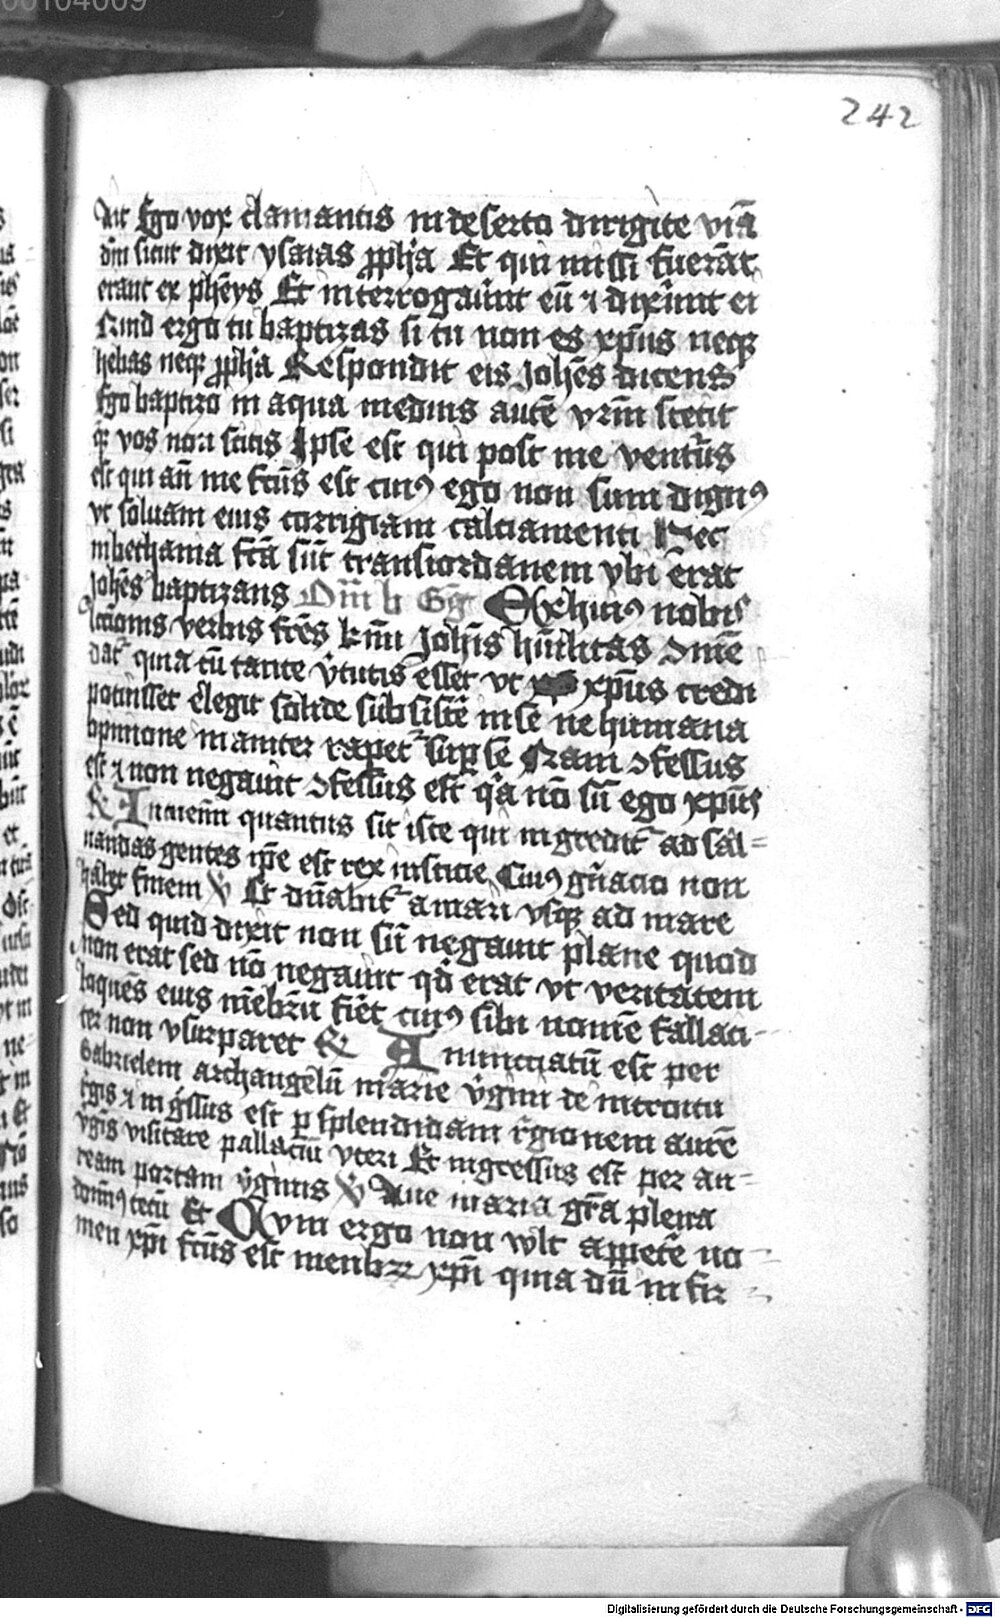 00104009
242
Ait Ego vox clamantis in deserto dirigite viā
dn̄i sicut dixit ysaias ꝓph̄a Et qui missi fuerāt
erant ex ph̄eys Et interrogauūt eū ⁊ dixūnt ei
Quid ergo tu baptizas si tu non es xp̄us neqꝫ
helias neqꝫ ꝓph̄a Respondit eis Joh̄es dicens
Ego baptizo in aqua medius autē vr̄m stetit
que vos non scitis Ipse est qui post me ventūs
est qui an̄ me fc̄us est cuiꝰ ego non sum dignꝰ
vt soluam eius corrigiam calciamenti Hec
in bethania fc̄a sūt trans iordanem vbi erat
Joh̄es baptizans Om̄ b Gg̃ Ex huiꝰ nobis
lc̄cionis verbis fr̄es kr̄mi Joh̄is hūilitas ↄmē
dat᷑ qui a cū tante v̄tutis esset vt xp̄us credi
potuisset elegit solide subsistē in se ne humana
opinione inaniter rapet᷑ suꝑ se Nam ↄfessus
est ⁊ non negauit ↄfessus est q̄a nō sū ego xp̄us
& Intuemī quantus sit iste qui ingredit᷑ ad sal=
uandas gentes ip̄e est rex iusticie Cuiꝰ gn̄acio non
habet finem ℣ Et dn̄abit᷑ a mari vsqꝫ ad mare
Sed quid dixit non sū negauit plane quod
non erat sed nō negauit qd̄ erat vt veritatem
loquēs eius mēbrū fiēt cuiꝰ sibi nomē fallaci-
ter non vsurparet & Annunciatū est per
Gabrielem archangelū marie v̄gini de introitu
r̄gis ⁊ in gr̄ssus est ꝑ splendidam r̄gionem aurē
v̄gis visitare pallaciū vteri Et ingressus est per au=
ream portam v̄ginis ℣ Aue maria gr̄a plena
domnꝰ tecū Et Qvm ergo non vult appetē no-
men xp̄i fc̄us est menbrꝝ xp̄i quia dū in fir-
Digitalisierung gefördert durch die Deutsche Forschungsgemeinschaft - DFG